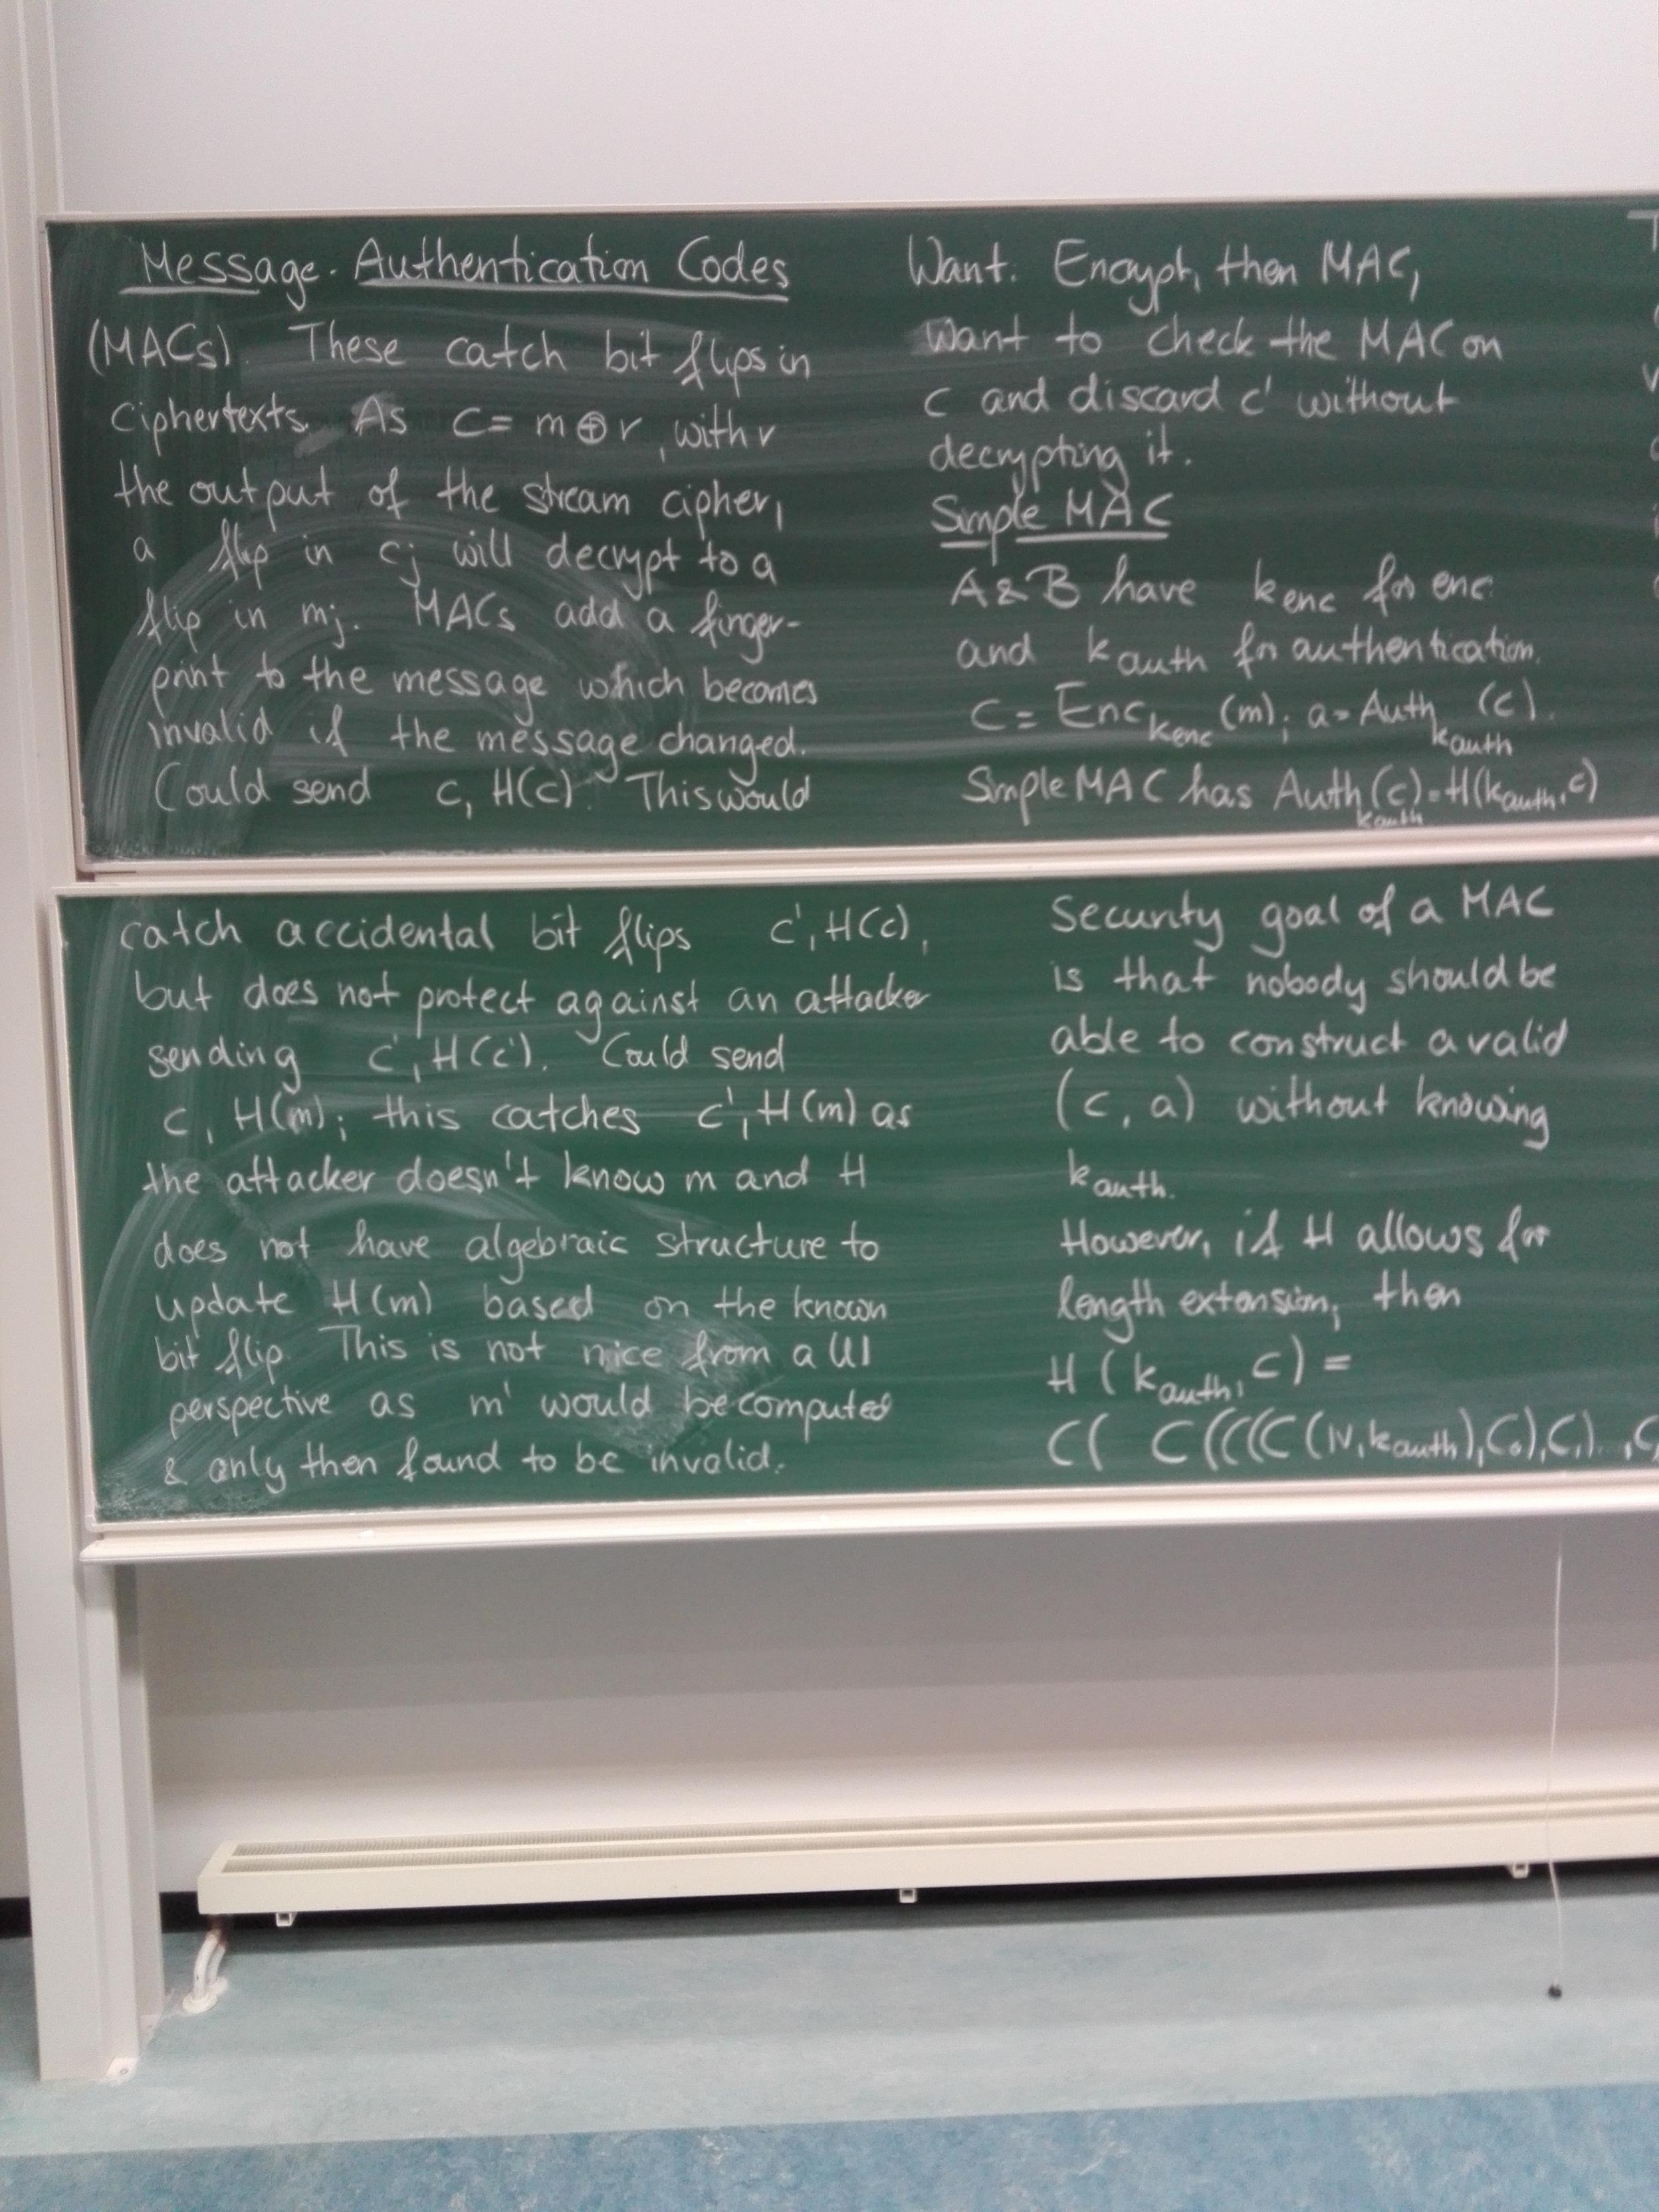 Message Authentication Codes
(MACs). These catch bit flips in
ciphertexts. As c = m ⊕ r, with r
the output of the stream cipher,
a flip in cj will decrypt to a
flip in mj. MACs add a finger-
print to the message which becomes
invalid if the message changed.
Could send c, H(c). This would
catch accidental bit flips c', H(c),
but does not protect against an attacker
sending c', H(c'). Could send
c, H(m); this catches c', H(m) as
the attacker doesn't know m and H
does not have algebraic structure to
update H(m) based on the known
bit flip. This is not nice from a UI
perspective as m' would be computed
& only then found to be invalid.
Want. Encrypt, then MAC,
want to check the MAC on
c and discard c' without
decrypting it.
Simple MAC
A & B have kenc for enc.
and kauth for authentication.
C = Enckenc (m); a = Authkauth (c).
Simple MAC has Authkauth (c) = H(kauth, c)
Security goal of a MAC
is that nobody should be
able to construct a valid
(c, a) without knowing
kauth.
However, if H allows for
length extension, then
H (kauth, c) =
C( C((((C (IV, kauth), C0), C1) .. , C